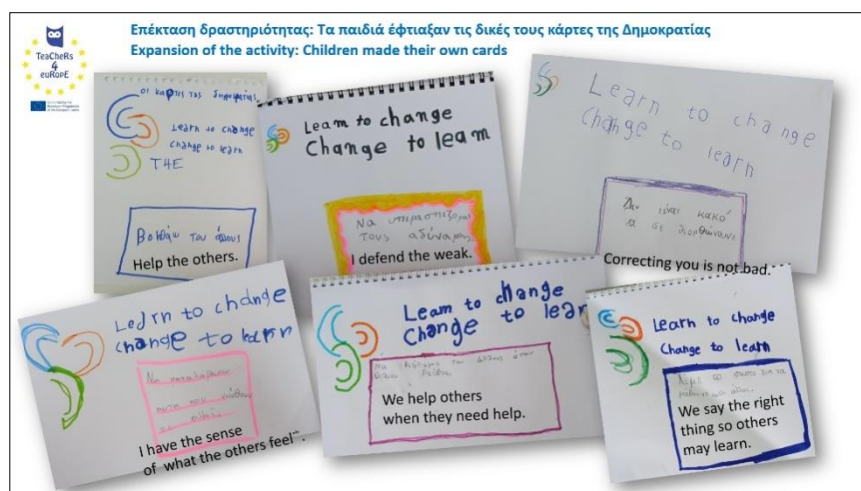 TeaCHeRs
4
euRoPE
Επέκταση δραστηριότητας: Τα παιδιά έφτιαξαν τις δικές τους κάρτες της Δημοκρατίας
Expansion of the activity: Children made their own cards
οι κάρτες της δημοκρατίας
Learn to change
change to learn
T4E
Βοηθάω του άλλους
Help the others.
Learn to change
Change to learn
Να υπερασπίζομαι
τους αδύναμους
I defend the weak.
Learn to change
change to learn
Δεν είναι κακό
να σε διορθώνουν
Correcting you is not bad.
Learn to change
change to learn
Να καταλαβαίνω
I have the sense
of "what the others feel".
Learn to change
Change to learn
We help others
when they need help.
Learn to change
Change to learn
We say the right
thing so others
may learn.